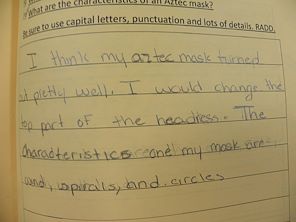 What are the characteristics of an Aztec mask?
Be sure to use capital letters, punctuation and lots of details. RADD.
I think my aztec mask turned
out pretty well. I would change the
top part of the headress. The
characteristics one my mask are
and, spiralls, and circles